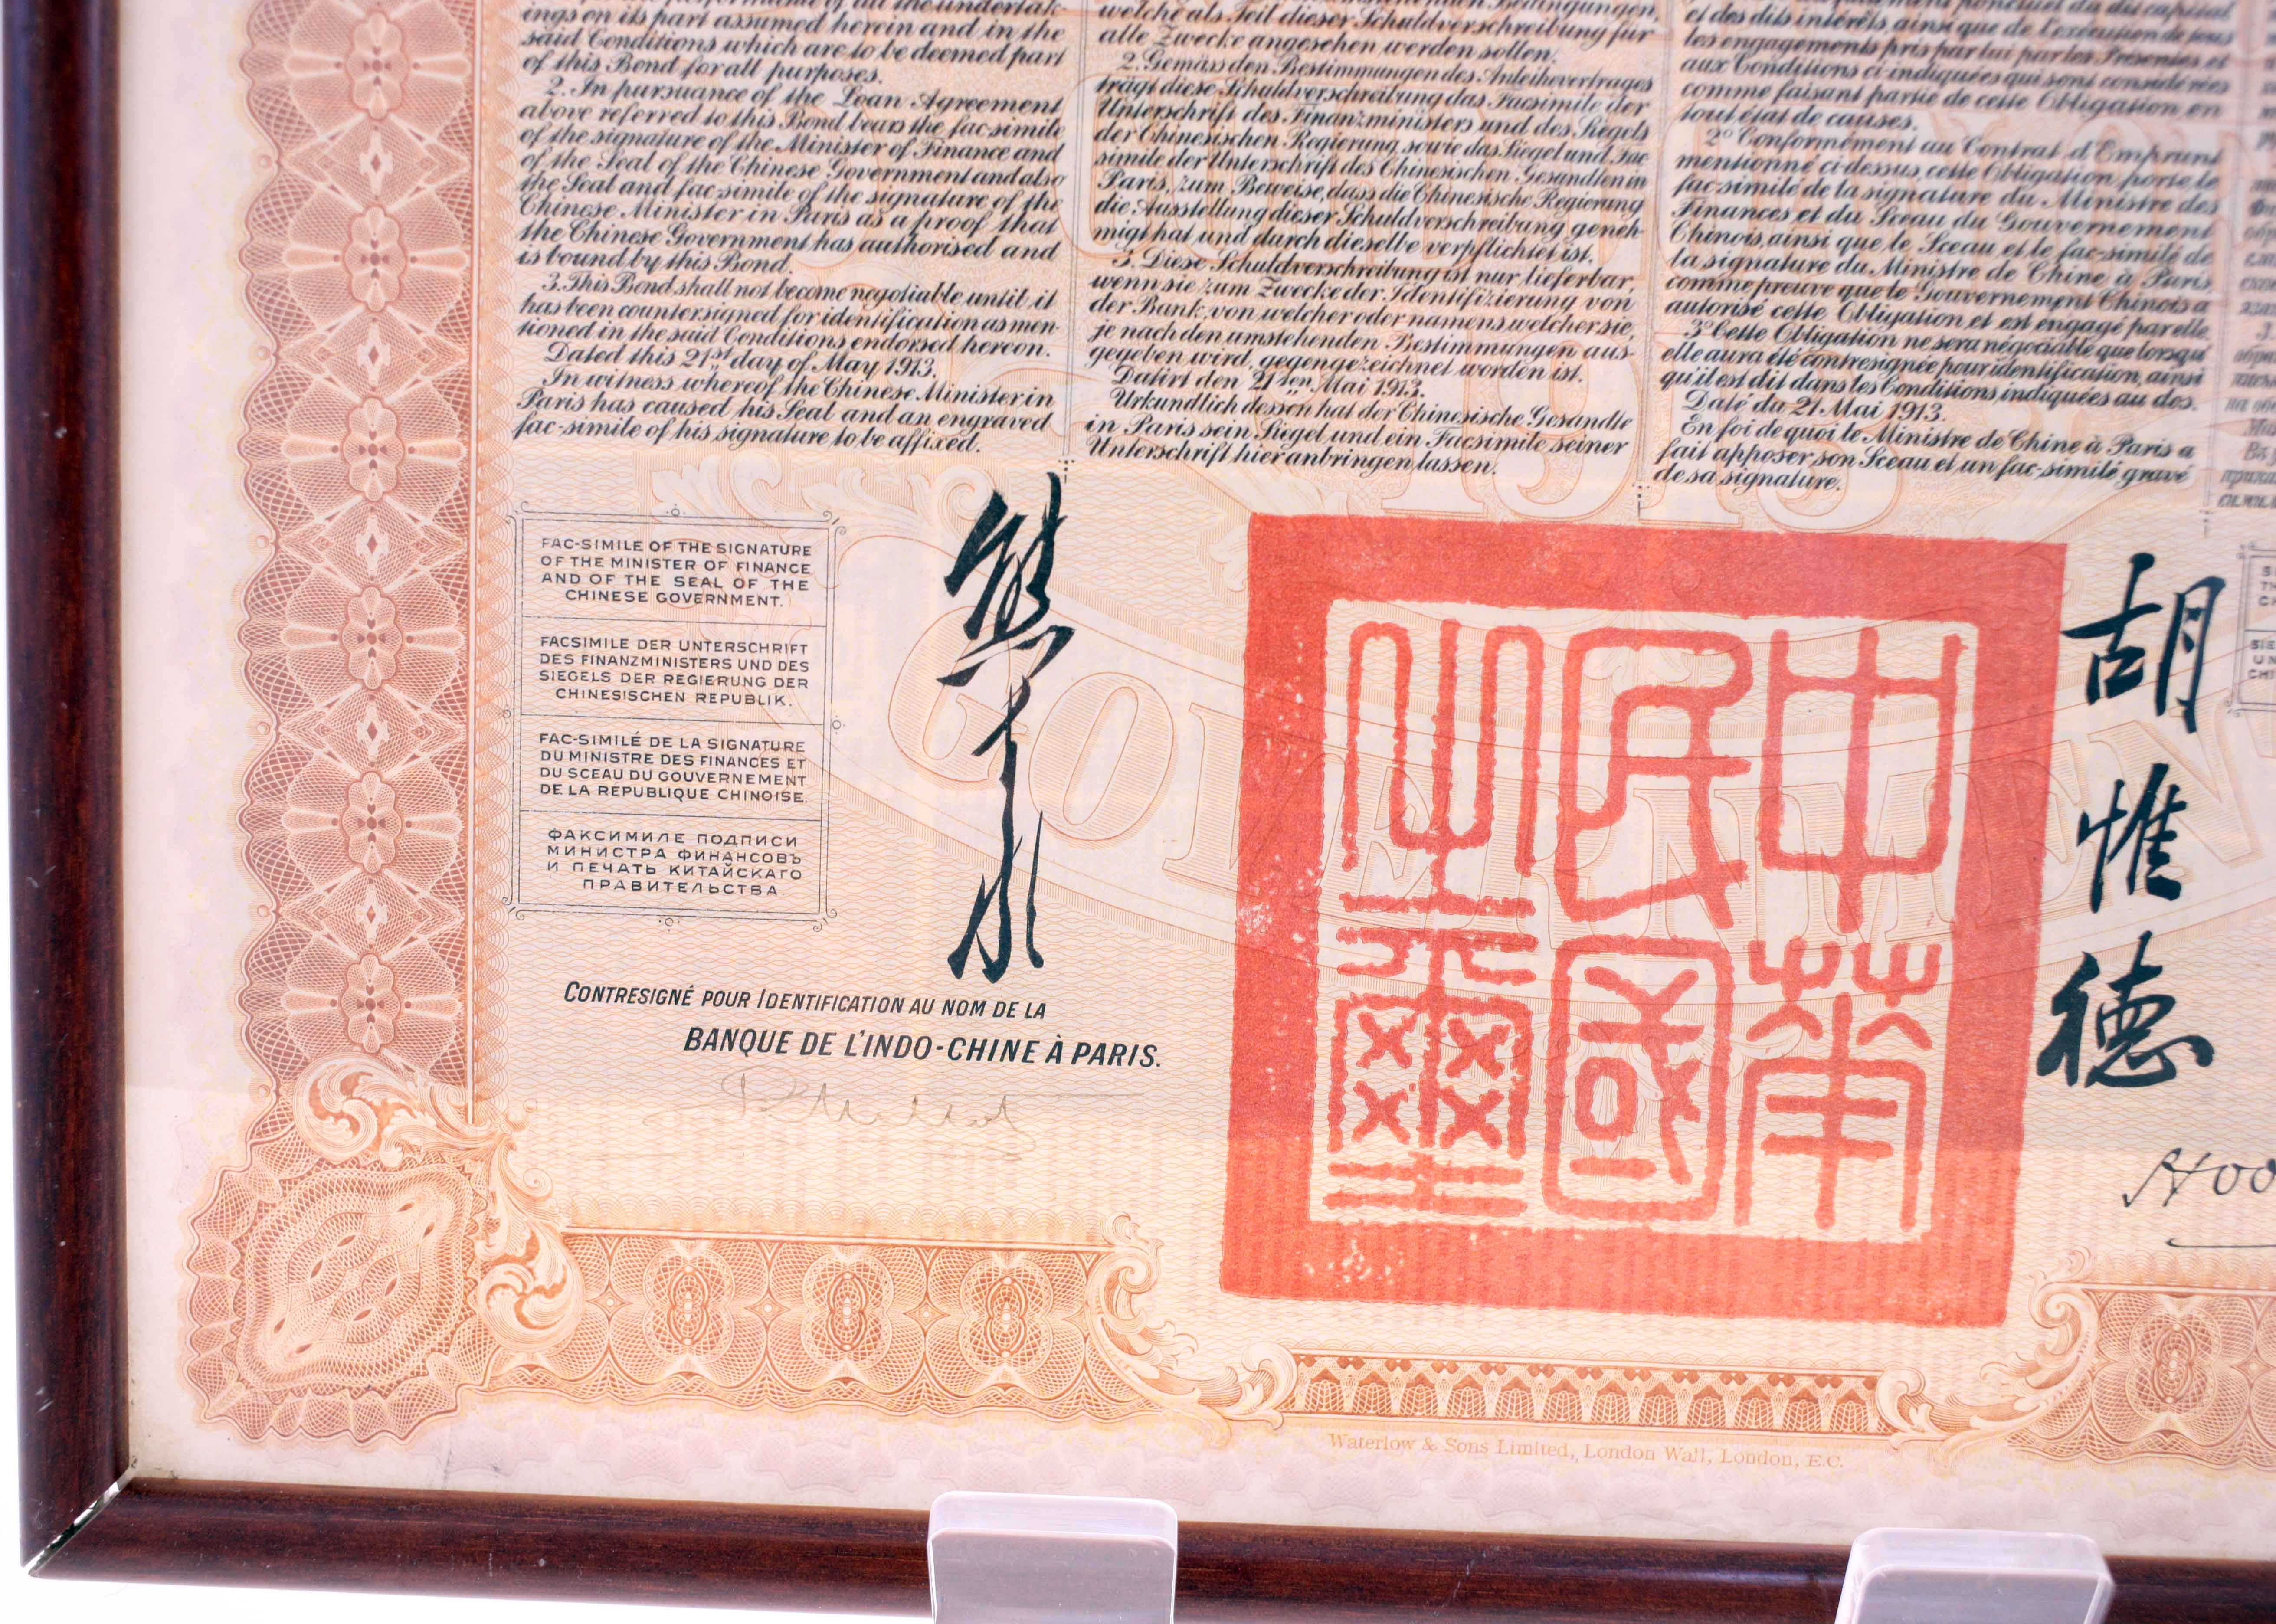 ings on its part assumed herein and in the
said Conditions which are to be deemed part
of this Bond for all purposes.
2. In pursuance of the Loan Agreement
above referred to this Bond bears the fac-simile
of the signature of the Minister of Finance and
of the Seal of the Chinese Government and also
the Seal and fac-simile of the signature of the
Chinese Minister in Paris as a proof that
the Chinese Government has authorised and
is bound by this Bond.
3. This Bond shall not become negotiable until it
has been countersigned for identification as men-
tioned in the said Conditions endorsed hereon.
Dated this 21st day of May 1913.
In witness whereof the Chinese Minister in
Paris has caused his Seal and an engraved
fac-simile of his signature to be affixed.
welche als Teil dieser Schuldverschreibung für
alle Zwecke angesehen werden sollen.
2. Gemäss den Bestimmungen des Anleihevertrages
trägt diese Schuldverschreibung das Facsimile der
Unterschrift des Finanzministers und des Siegels
der Chinesischen Regierung, sowie das Siegel und Fac
simile der Unterschrift des Chinesischen Gesandten in
Paris, zum Beweise, dass die Chinesische Regierung
die Ausstellung dieser Schuldverschreibung geneh-
migt hat und durch dieselbe verpflichtet ist.
3. Diese Schuldverschreibung ist nur lieferbar,
wenn sie zum Zwecke der Identifizierung von
der Bank, von welcher oder namens welcher sie,
je nach den umstehenden Bestimmungen aus-
gegeben wird, gegengezeichnet worden ist.
Datirt den 21ten Mai 1913.
Urkundlich dessen hat der Chinesische Gesandte
in Paris sein Siegel und ein Facsimile seiner
Unterschrift hier anbringen lassen.
et des dits intérêts, ainsi que de l'exécution de tous
les engagements pris par lui par les Présentes et
aux Conditions ci-indiquées qui sont considérées
comme faisant partie de cette Obligation en
tout état de causes.
2º Conformément au Contrat d'Emprunt
mentionné ci-dessus, cette Obligation porte le
fac-similé de la signature du Ministre des
Finances et du Sceau du Gouvernement
Chinois, ainsi que le Sceau et le fac-similé de
la signature du Ministre de Chine à Paris,
comme preuve que le Gouvernement Chinois a
autorisé cette Obligation et est engagé par elle.
3º Cette Obligation ne sera négociable que lorsqu'
elle aura été contresignée pour identification, ainsi
qu'il est dit dans les Conditions indiquées au dos.
Daté du 21 Mai 1913.
En foi de quoi le Ministre de Chine à Paris a
fait apposer son Sceau et un fac-similé gravé
de sa signature.
1913
FAC-SIMILE OF THE SIGNATURE
OF THE MINISTER OF FINANCE
AND OF THE SEAL OF THE
CHINESE GOVERNMENT.
FACSIMILE DER UNTERSCHRIFT
DES FINANZMINISTERS UND DES
SIEGELS DER REGIERUNG DER
CHINESISCHEN REPUBLIK.
FAC-SIMILÉ DE LA SIGNATURE
DU MINISTRE DES FINANCES ET
DU SCEAU DU GOUVERNEMENT
DE LA REPUBLIQUE CHINOISE.
ФАКСИМИЛЕ ПОДПИСИ
МИНИСТРА ФИНАНСОВЪ
И ПЕЧАТЬ КИТАЙСКАГО
ПРАВИТЕЛЬСТВА
中華
民國
之璽
胡惟德
GOVERNMEN
CONTRESIGNÉ POUR IDENTIFICATION AU NOM DE LA
BANQUE DE L'INDO-CHINE À PARIS.
Hoo
Waterlow & Sons Limited, London Wall, London, E.C.